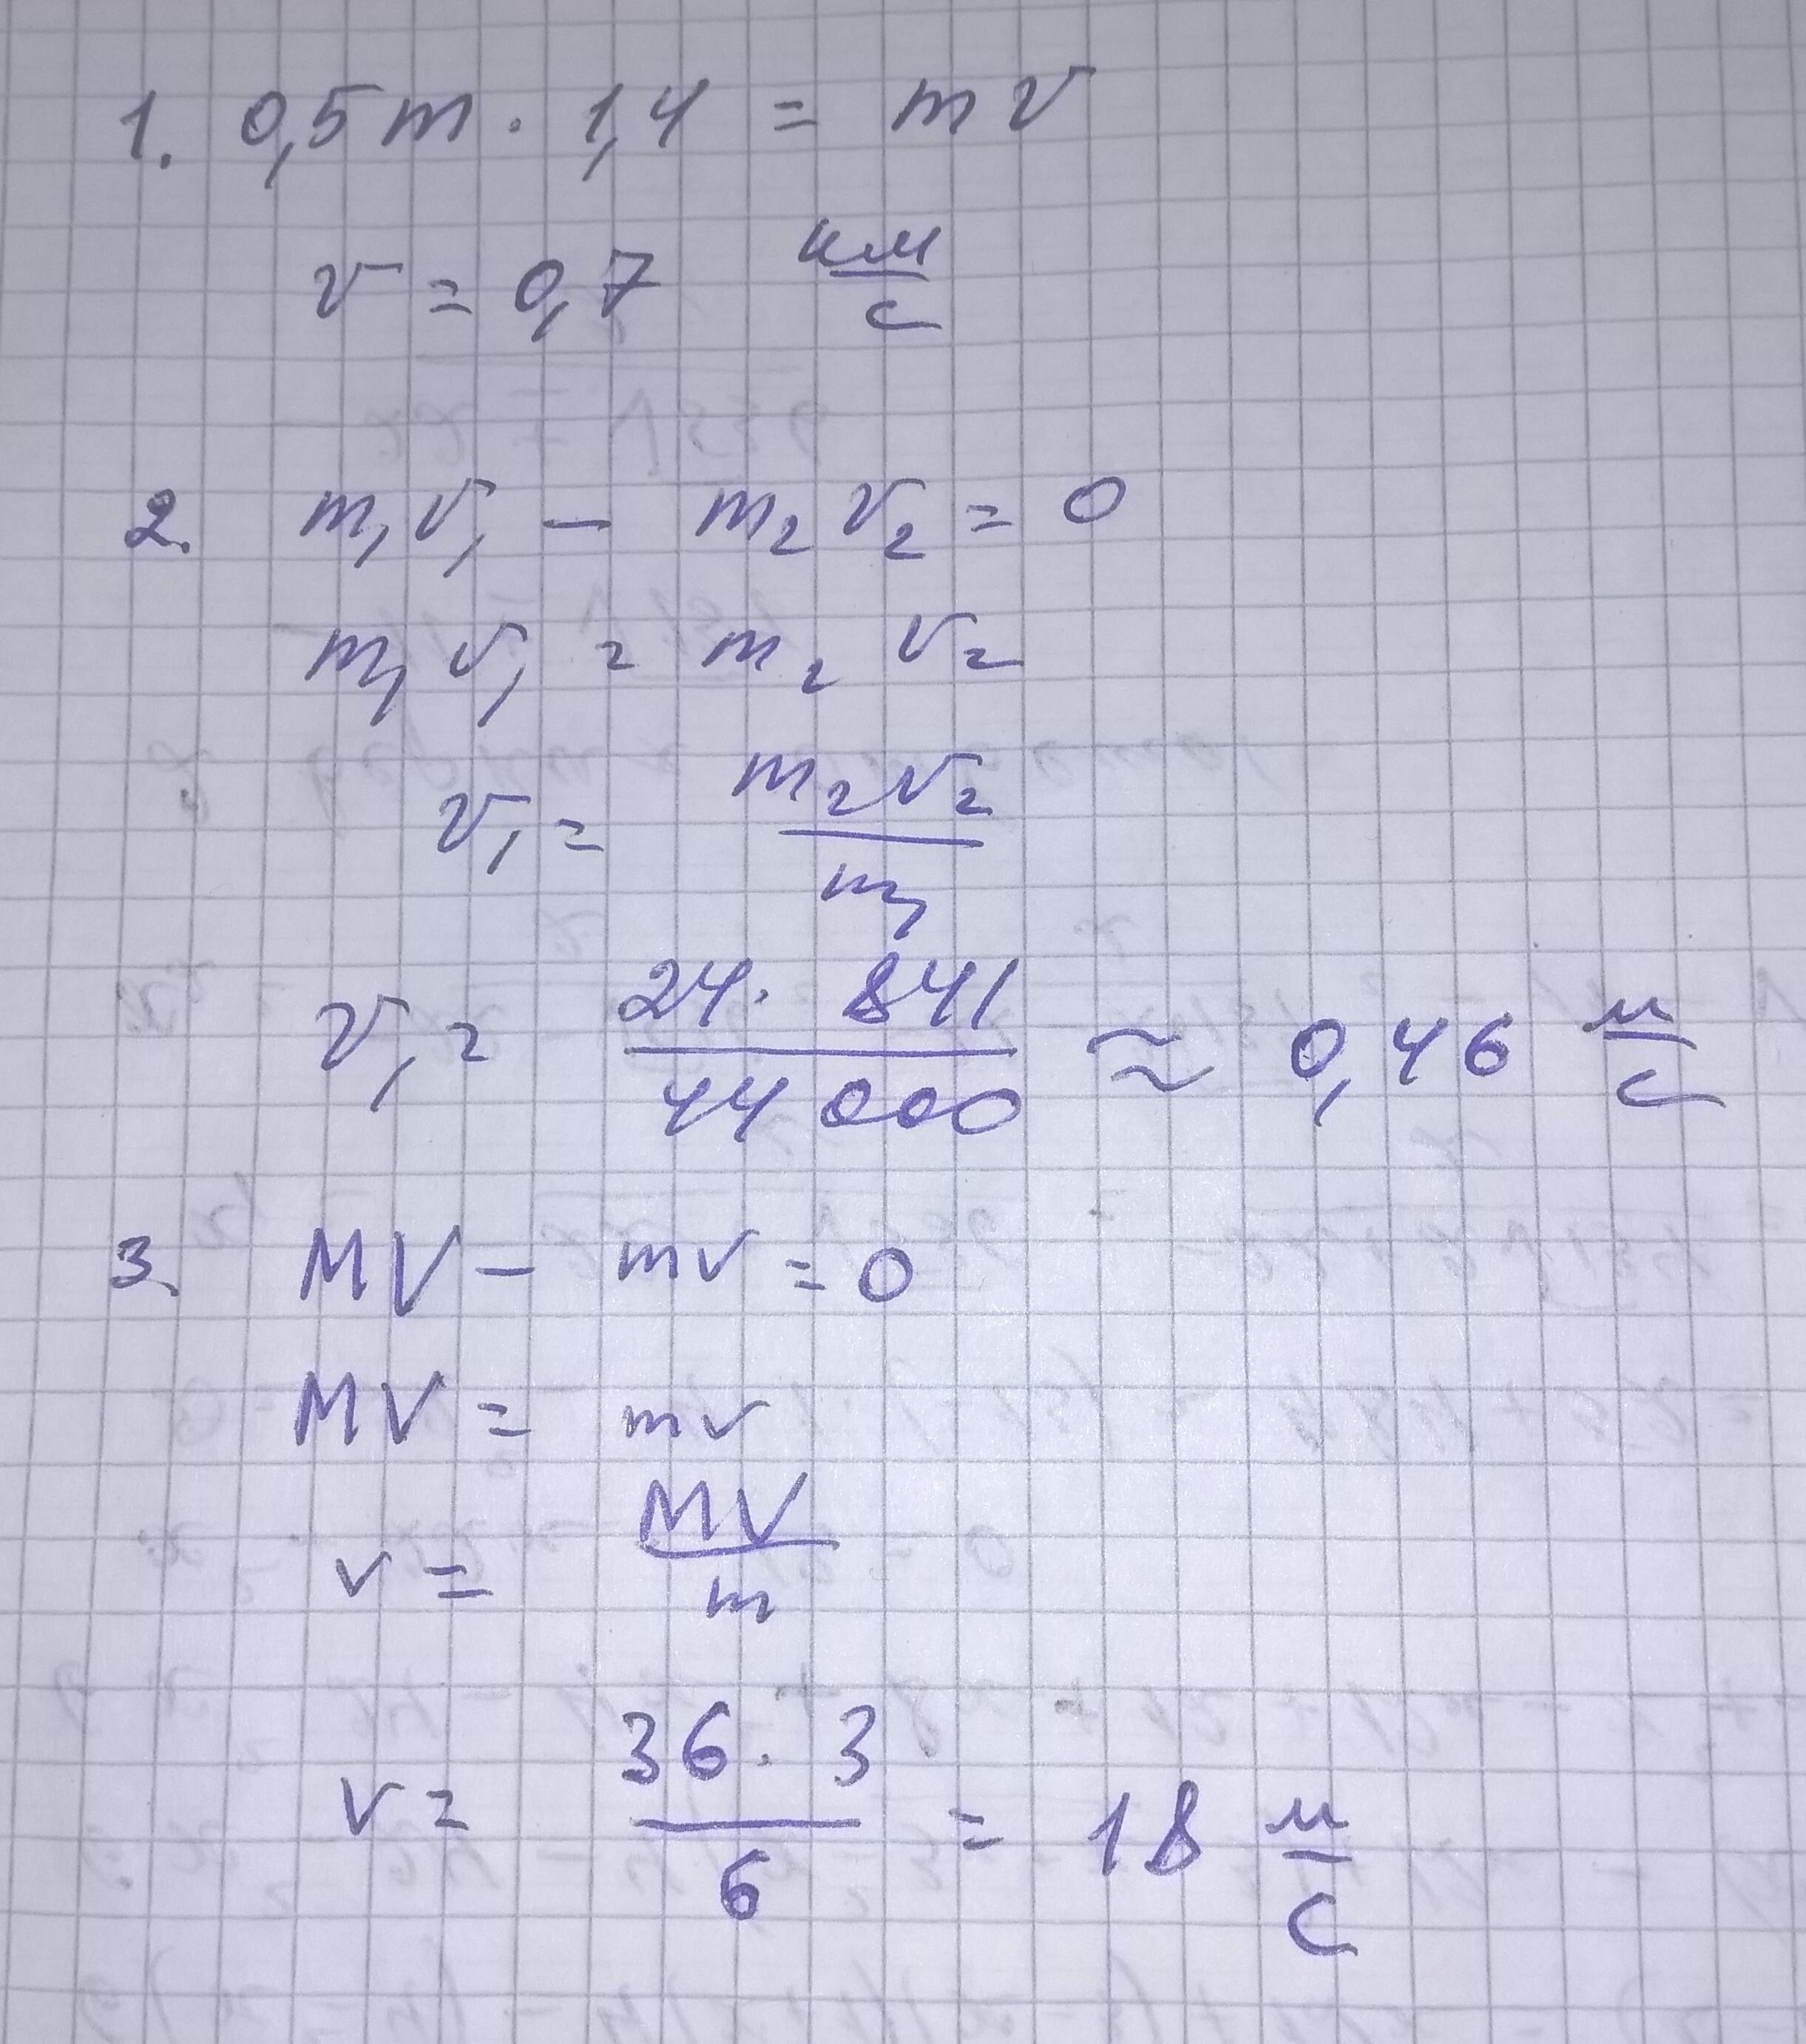 1. 0,5m · 1,4 = mv
v = 0,7 км/с
2. m₁v₁ - m₂v₂ = 0
m₁v₁ = m₂v₂
v₁ = m₂v₂/m₁
v₁ = 24 · 841/44000 ≈ 0,46 м/с
3. MV - mv = 0
MV = mv
v = MV/m
v = 36 · 3/6 = 18 м/с